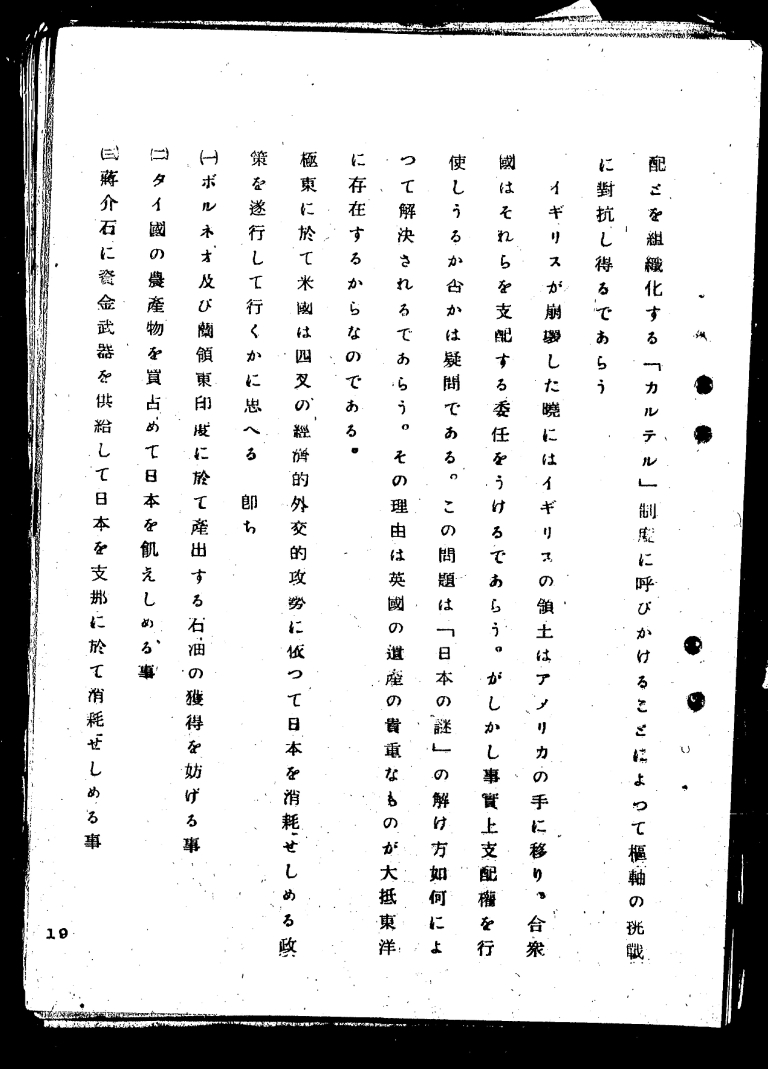 配とを組織化する「カルテル」制度に呼びかけることによつて樞軸の挑戰
に對抗し得るであらう
イギリスが崩壞した曉にはイギリスの領土はアメリカの手に移り、合衆
國はそれらを支配する委任をうけるであらう。がしかし事實上支配權を行
使しうるか否かは疑問である。この問題は「日本の謎」の解け方如何によ
つて解決されるであらう。その理由は英國の遺産の貴重なものが大抵東洋
に存在するからなのである。
極東に於て米國は四叉の經濟的外交的攻勢に依つて日本を消耗せしめる政
策を遂行して行くかに思へる 卽ち
㈠ボルネオ及び蘭領東印度に於て產出する石油の獲得を妨げる事
㈡タイ國の農產物を買占めて日本を飢えしめる、事
㈢蔣介石に資金武器を供給して日本を支那に於て消耗せしめる事
19